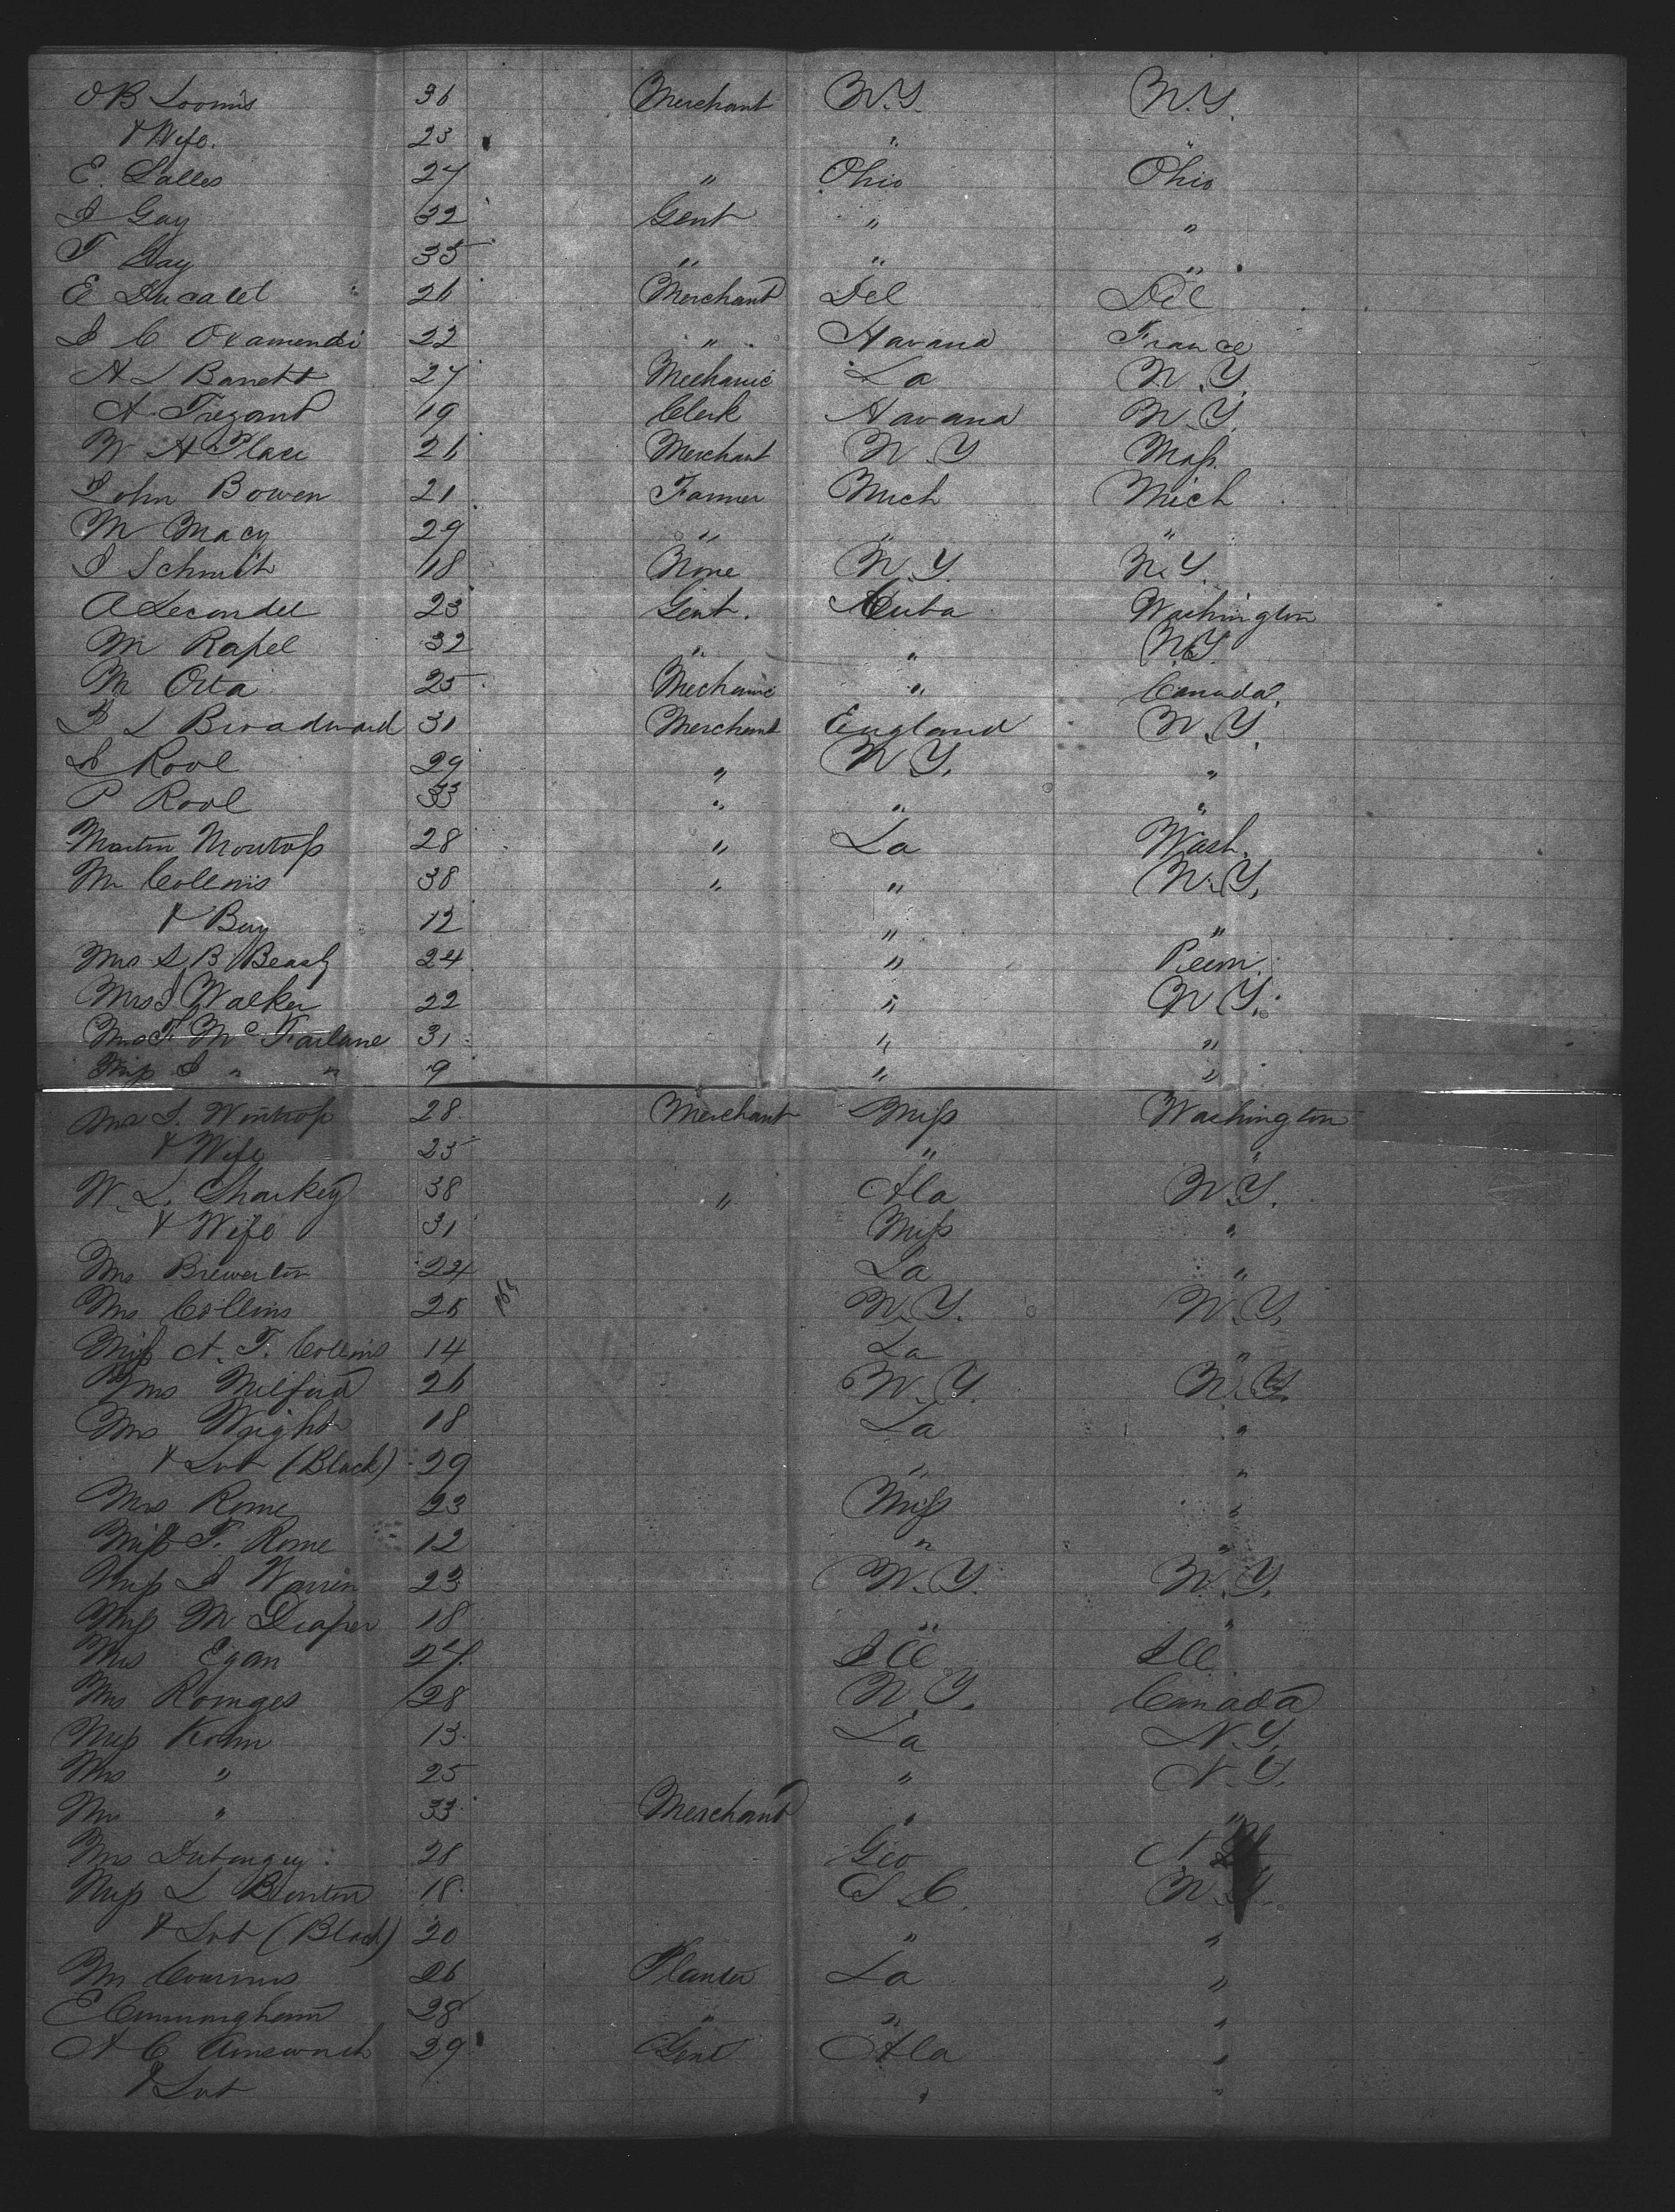 O B Loomis 36 Merchant N.Y. N.Y.
& Wife. 23 " "
E. Salles 27 " Ohio Ohio
J Gay 32 Gent " "
T Gay 35 " " "
E Ducatel 26 Merchant Del Del
J C Oxamendi 22 " Havana France
A L Barrett 27 Mechanic La N.Y.
A Trezant 19 Clerk Havana N.Y.
W A Place 26 Merchant N.Y Mass.
John Bowen 21 Farmer Mich Mich
M Macy 29 " " "
J Schmith 18 None N.Y. N.Y.
A Lecondel 23 Gent. Cuba Washington
M Rafel 32 " " N.Y.
M Orta 25 Mechanic " Canada.
J L Broadward 31 Merchant England N.Y.
L Rool 29 " N.Y. "
P Rool 33 " " "
Martin Montross 28 " La Wash.
Mr Collins 38 " " N.Y.
& Boy 12 " "
Mrs L B Beasly 24 " Penn.
Mrs J Walker 22 " N.Y.
Mrs F. McFarlane 31 " "
Miss J " " 9 " "
Mr J. Wintrop 28 Merchant Miss Washington
& Wife 25 " "
W. L. Sharkey 38 " Ala N.Y.
& Wife 31 Miss "
Mrs Brewerton 24 La "
Mrs Collins 26 N.Y. N.Y.
Miss A. T. Collins 14 La "
Mrs Milford 26 N.Y. N.Y.
Mrs Wright 18 La "
& Svt (Black) 29 " "
Mrs Rome 23 Miss "
Miss T. Rome 12 " "
Miss J Warren 23 N.Y. N.Y.
Miss M Draper 18 " "
Mrs Egan 27 Ill Ill
Mrs Romges 28 N.Y. Canada
Miss Kohn 13 La N.Y.
Mrs " 25 " N.Y.
Mr " 33 Merchant " "
Mrs 28 Geo N.Y.
Miss L Benton 18 S.C. N.Y.
& Svt (Black) 20 " "
Mr 26 Planter La "
E Cunningham 28 " " "
A C Ainsworth 29 Gent Ala "
& Svt " "